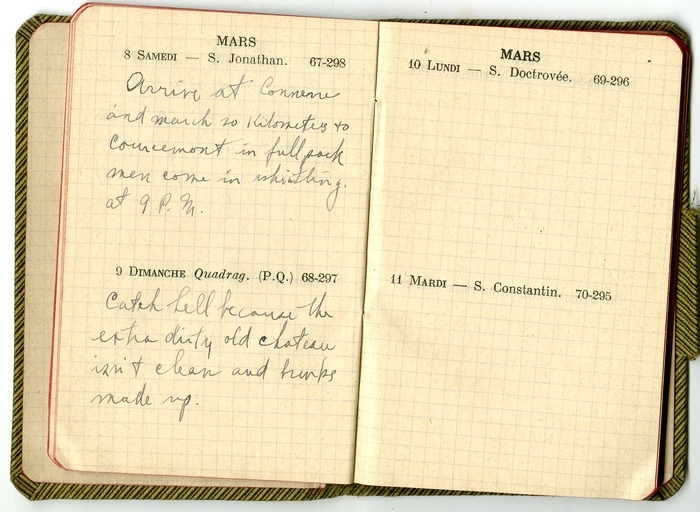 MARS
8 SAMEDI — S. Jonathan. 67-298
Arrive at Connerre
and march 20 Kilometers to
Courcemont in full pack
men come in whistling.
at 9 P.M.
9 DIMANCHE Quadrag. (P.Q.) 68-297
Catch hell because the
extra dirty old chateau
isn't clean and bunks
made up.
MARS
10 LUNDI — S. Doctrovée. 69-296
11 MARDI — S. Constantin. 70-295